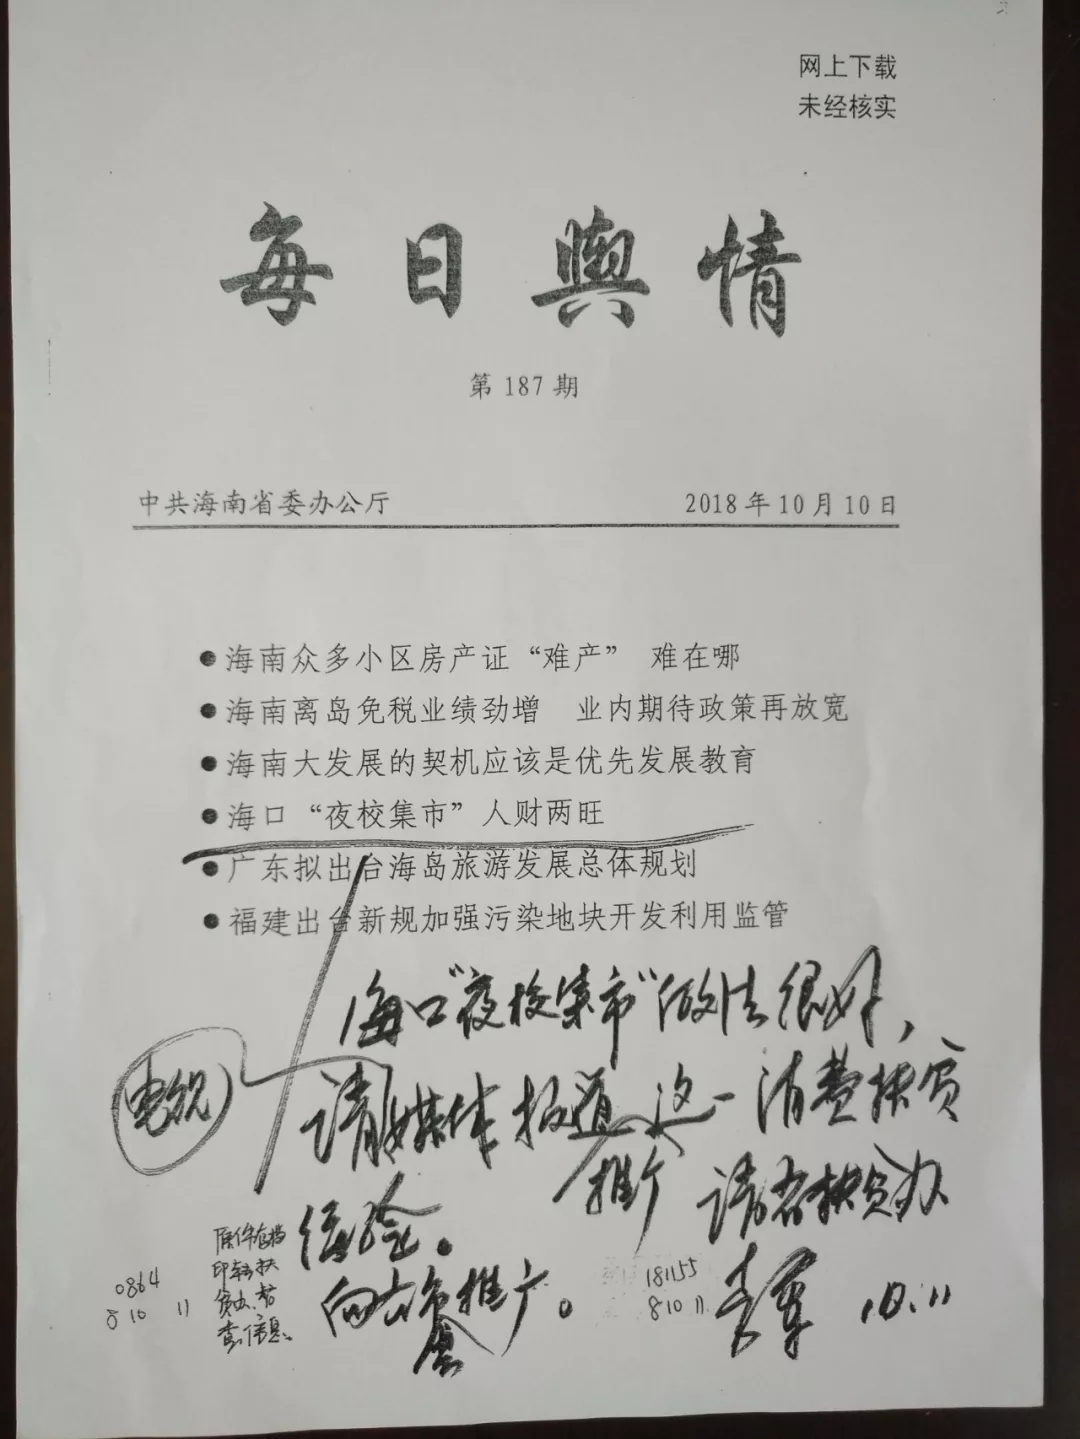 网上下载
未经核实
每日舆情
第 187 期
中共海南省委办公厅 2018 年 10 月 10 日
●海南众多小区房产证“难产” 难在哪
●海南离岛免税业绩劲增 业内期待政策再放宽
●海南大发展的契机应该是优先发展教育
●海口“夜校集市”人财两旺
●广东拟出台海岛旅游发展总体规划
●福建出台新规加强污染地块开发利用监管
海口“夜校集市”做法很好，
电视
请媒体报道 这一消费扶贫
推广 请省扶贫办
经验。
向全省推广。
原件存档
印转扶
贫办、
信息
0864
8 10 11
181155
8 10 11
李军 10.11